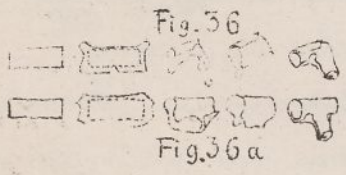 Fig. 36
Fig. 36 a